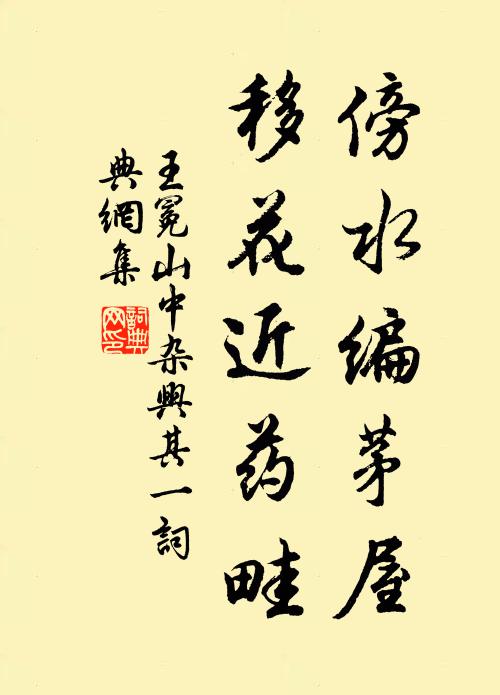 傍水编茅屋
移花近药畦
王冕山中杂興其一詞
典網集
詞典网印